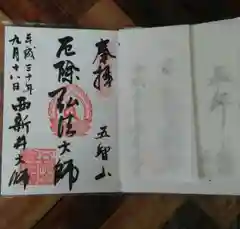 奉拝
五智山
厄除弘法大師
平成三十年
九月十八日
西新井大師